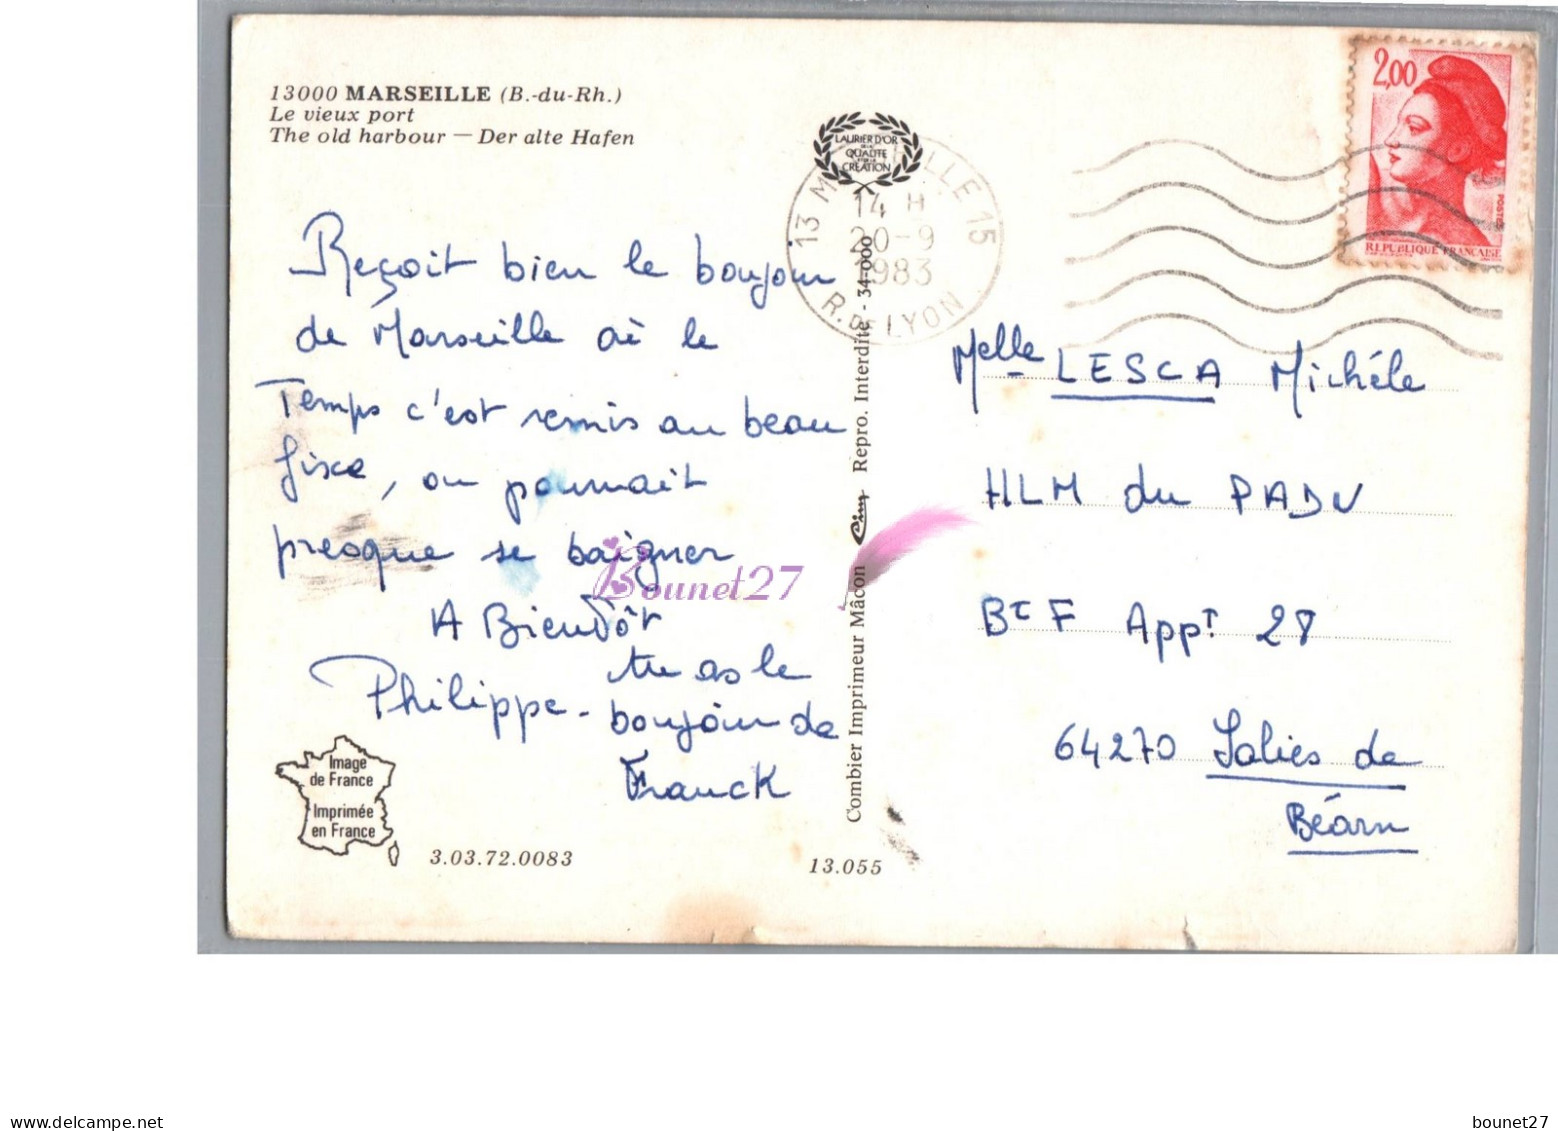 13000 MARSEILLE (B.-du-Rh.)
Le vieux port
The old harbour — Der alte Hafen
LAURIER D'OR
DE LA
QUALITÉ
ET DE LA
CRÉATION
13 MARSEILLE 15
14 H
20-9
1983
R. DE LYON
2,00
POSTES
REPUBLIQUE FRANÇAISE
Reçoit bien le boujour
de Marseille où le
Temps c'est remis au beau
fixe, on pourrait
presque se baigner
A Bientôt
Philippe -
tu as le
boujour de
Franck
Combier Imprimeur Mâcon Cim Repro. Interdite - 34-000
Melle LESCA Michéle
HLM du PADU
Bt F Appt 28
64270 Salies de
Béarn
Bounet27
Image
de France
Imprimée
en France
3.03.72.0083
13.055
https://www.delcampe.net
bounet27